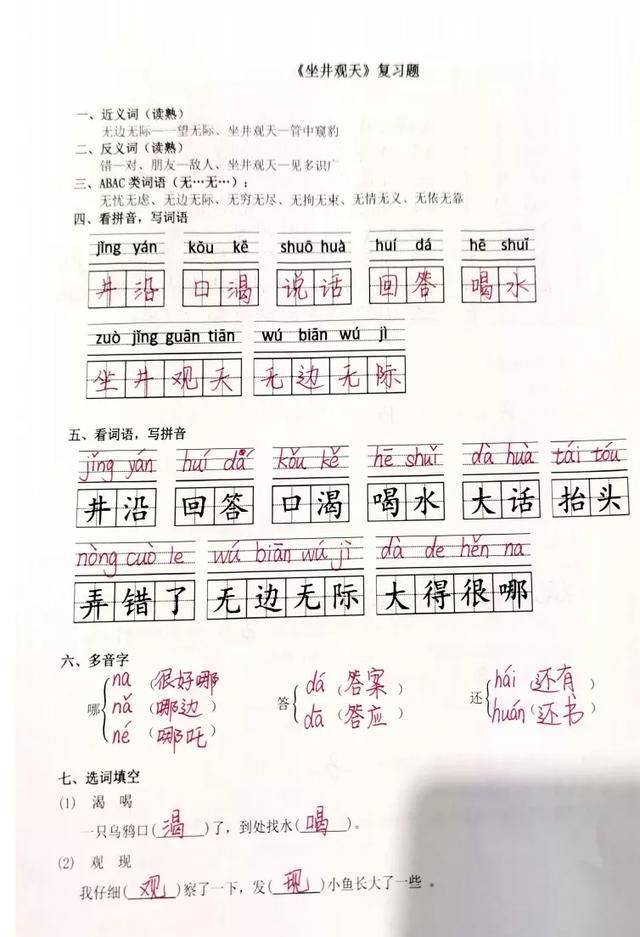 《坐井观天》复习题
一、近义词（读熟）
无边无际—一望无际、坐井观天—管中窥豹
二、反义词（读熟）
错—对、朋友—敌人、坐井观天—见多识广
三、ABAC 类词语（无…无…）：
无忧无虑、无边无际、无穷无尽、无拘无束、无情无义、无依无靠
四、看拼音，写词语
jǐng yán kǒu kě shuō huà huí dá hē shuǐ
井沿 口渴 说话 回答 喝水
zuò jǐng guān tiān wú biān wú jì
坐井观天 无边无际
五、看词语，写拼音
jǐng yán huí dá kǒu kě hē shuǐ dà huà tái tóu
井沿 回答 口渴 喝水 大话 抬头
nòng cuò le wú biān wú jì dà de hěn na
弄错了 无边无际 大得很哪
六、多音字
哪 na（很好哪） nǎ（哪边） né（哪吒）
答 dá（答案） dā（答应）
还 hái（还有） huán（还书）
七、选词填空
(1) 渴 喝
一只乌鸦口(渴)了，到处找水(喝)。
(2) 观 现
我仔细(观)察了一下，发(现)小鱼长大了一些 。